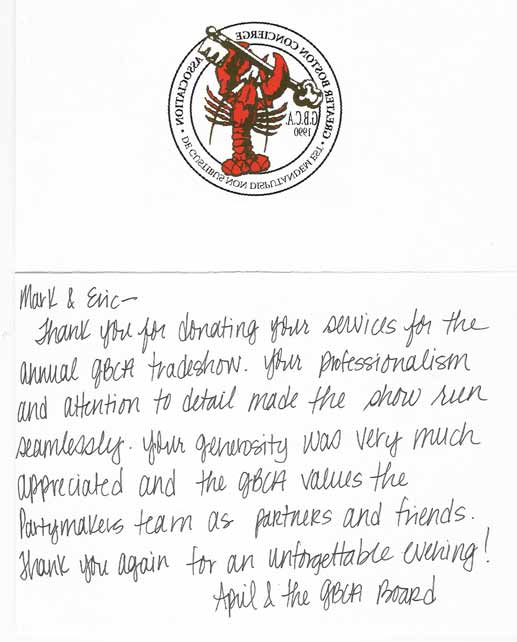 GREATER BOSTON CONCIERGE ASSOCIATION
• DE GUSTIBUS NON DISPUTANDEM EST •
G.B.C.A.
1990
Mark & Eric—
Thank you for donating your services for the
annual GBCA tradeshow. Your professionalism
and attention to detail made the show run
seamlessly. Your generosity was very much
appreciated and the GBCA values the
Partymakers team as partners and friends.
Thank you again for an unforgettable evening!
April & the GBCA Board